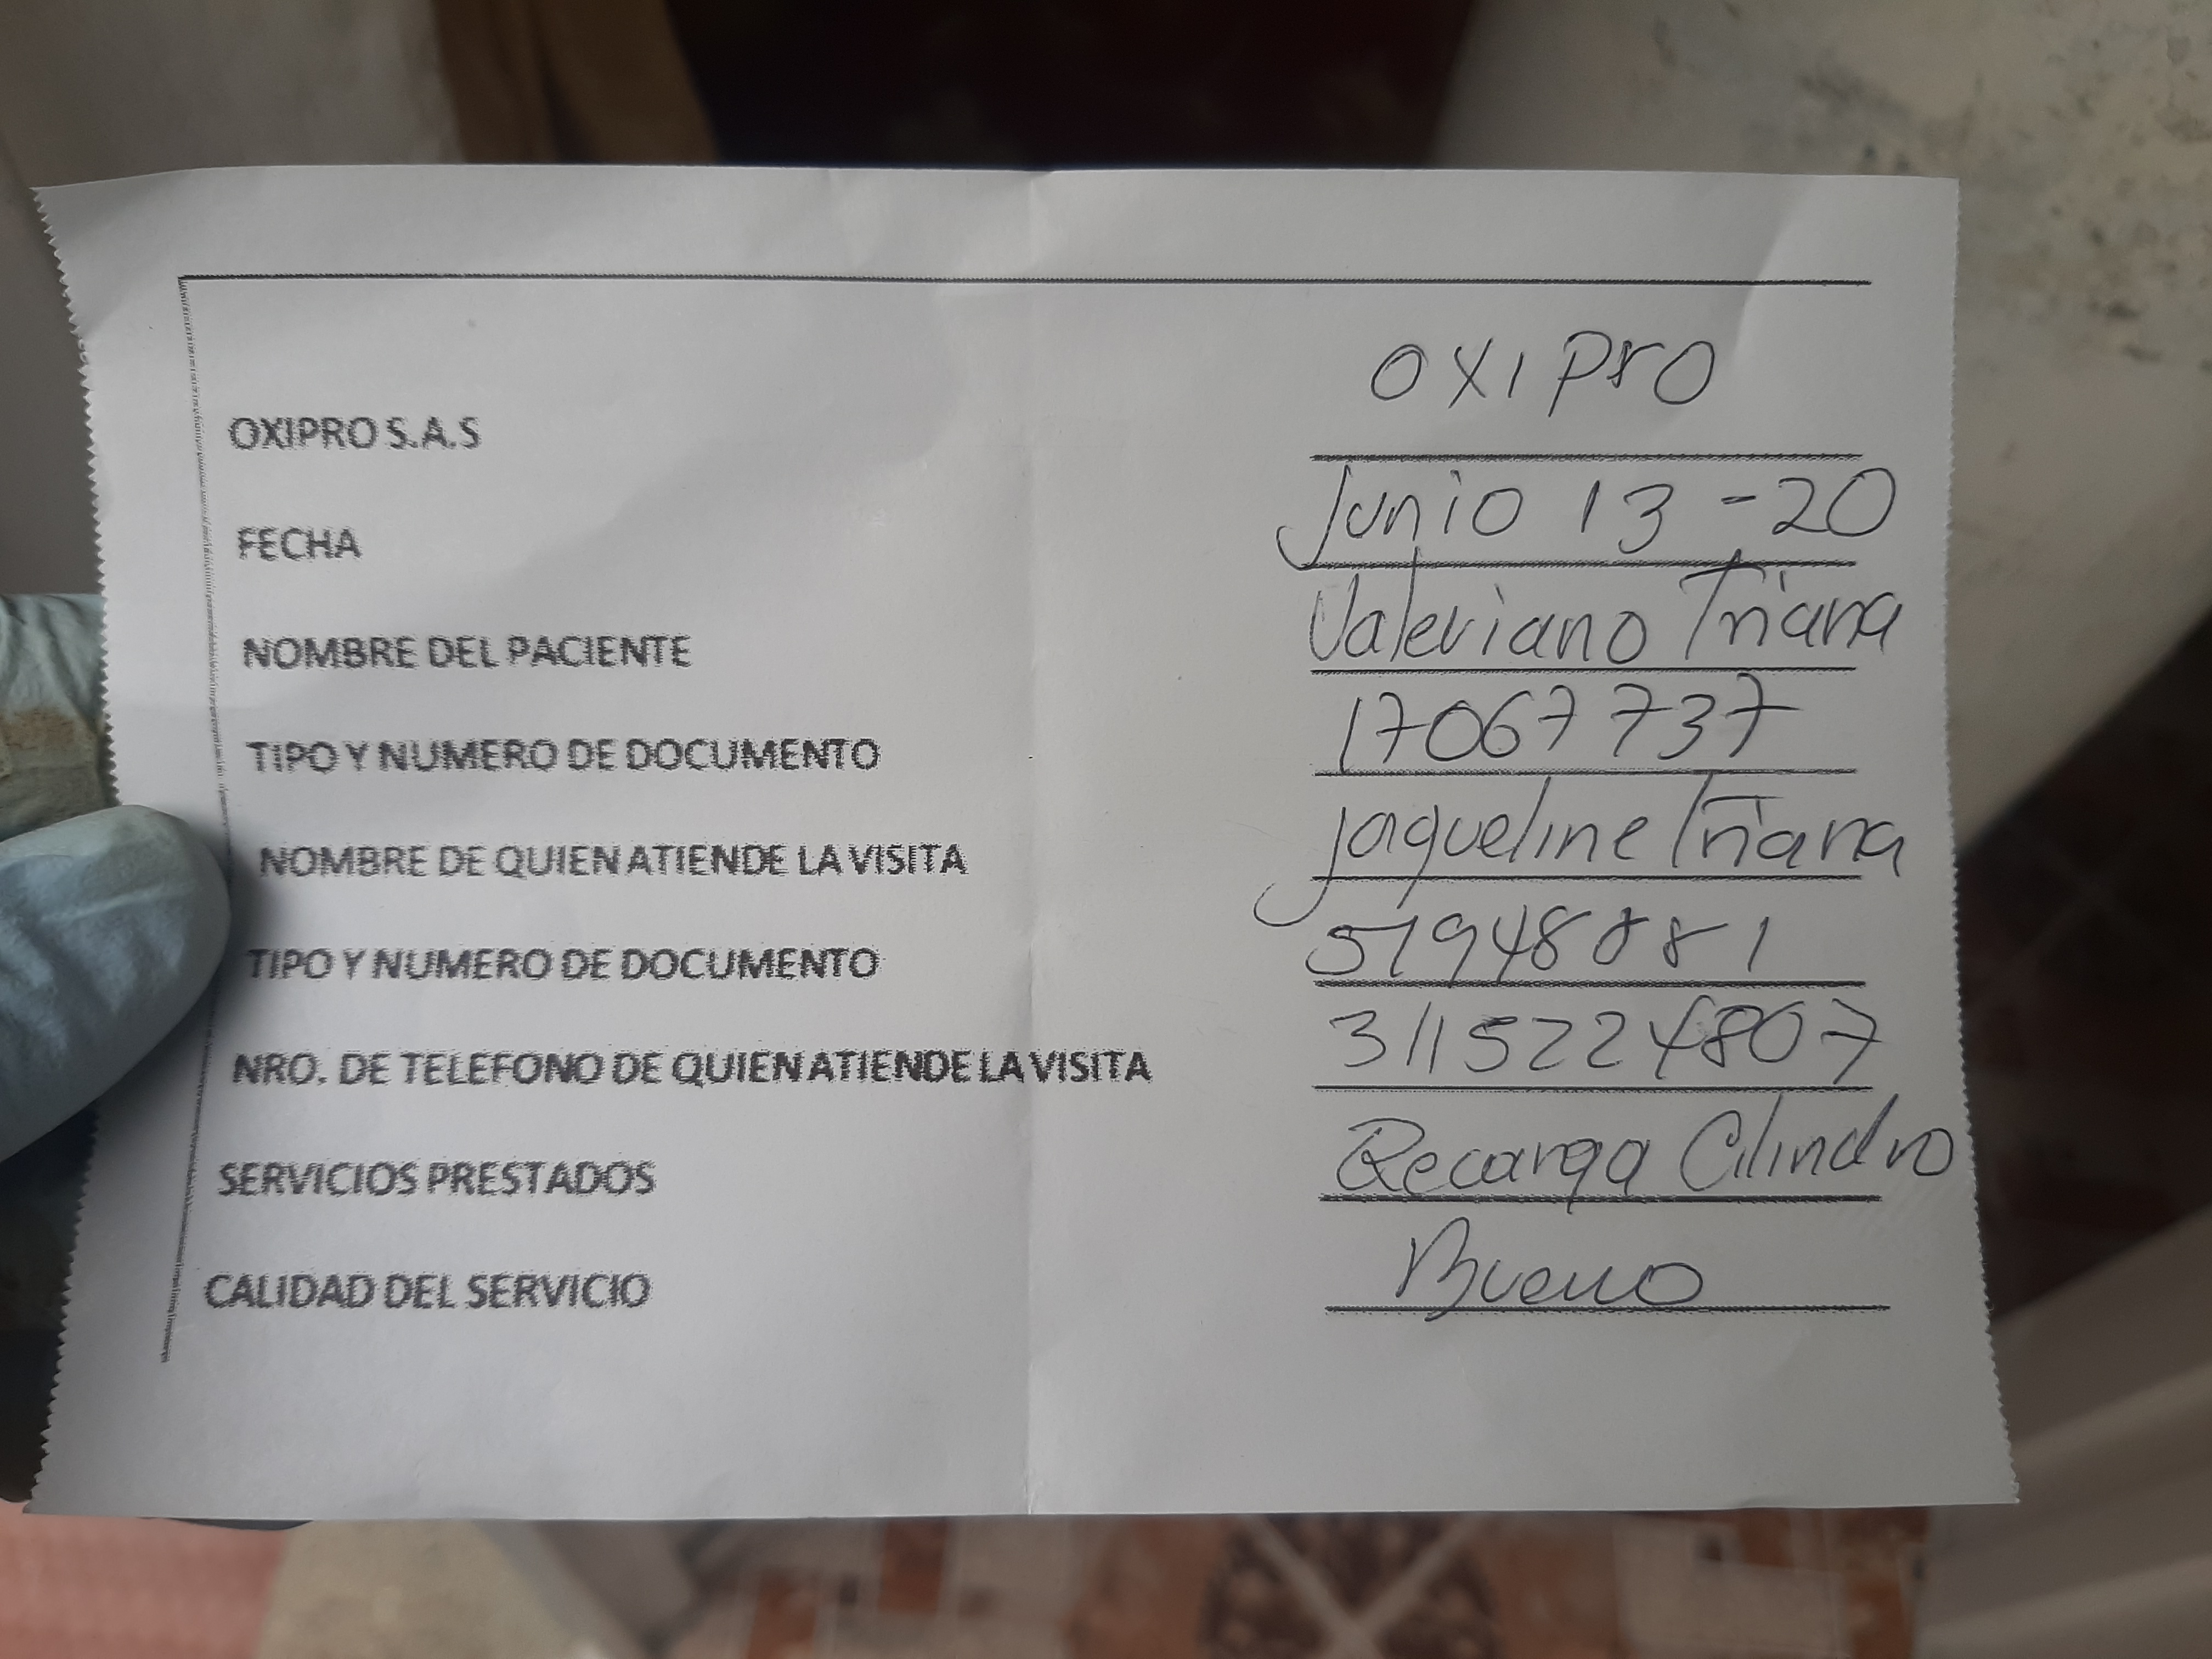 OXIPRO S.A.S oxipro
FECHA Junio 13 - 20
NOMBRE DEL PACIENTE Valeriano Triana
TIPO Y NUMERO DE DOCUMENTO 17067737
NOMBRE DE QUIEN ATIENDE LA VISITA jaqueline Triana
TIPO Y NUMERO DE DOCUMENTO 51948881
NRO. DE TELEFONO DE QUIEN ATIENDE LA VISITA 3115224807
SERVICIOS PRESTADOS Recarga Cilindro
CALIDAD DEL SERVICIO Bueno